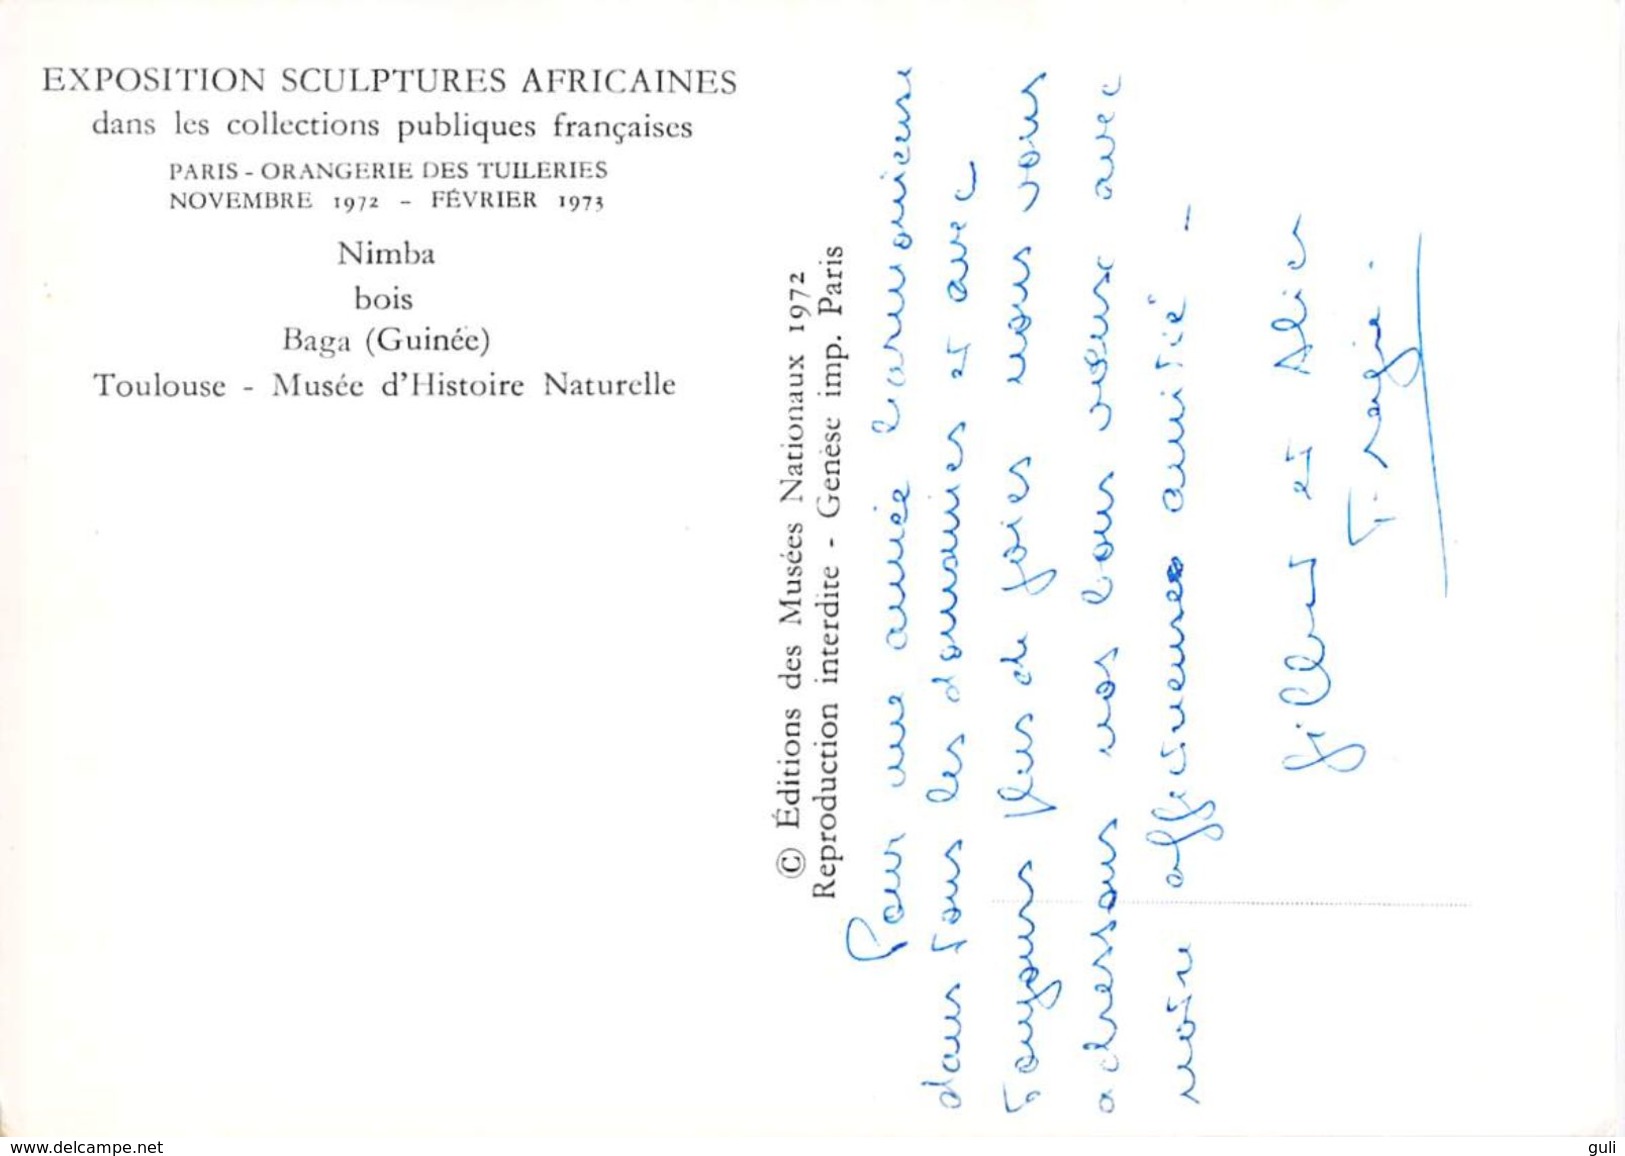 EXPOSITION SCULPTURES AFRICAINES
dans les collections publiques françaises
PARIS - ORANGERIE DES TUILERIES
NOVEMBRE 1972 - FÉVRIER 1973
Nimba
bois
Baga (Guinée)
Toulouse - Musée d'Histoire Naturelle
© Éditions des Musées Nationaux 1972
Reproduction interdite - Genèse imp. Paris
Pour une année harmonieuse
dans tous les domaines et avec
toujours plus de joies nous vous
adressons nos bons vœux avec
notre affectueuse amitié -
Gilbert et Alice
www.delcampe.net
guli